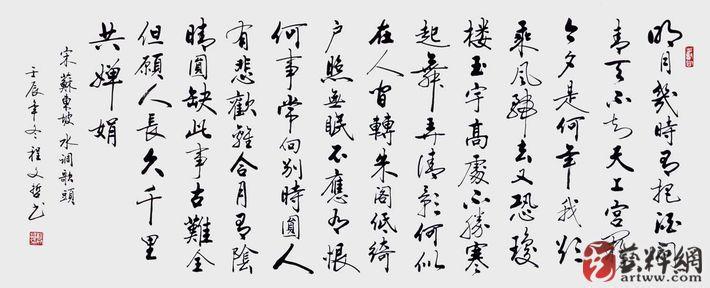 明月幾時有把酒問
青天不知天上宮闕
今夕是何年我欲
乘風歸去又恐瓊
樓玉宇高處不勝寒
起舞弄清影何似
在人間轉朱閣低綺
户照無眠不應有恨
何事常向別時圓人
有悲歡離合月有陰
晴圓缺此事古難全
但願人長久千里
共嬋娟
宋蘇東坡水調歌頭
壬辰年冬程文哲書
www.artww.com